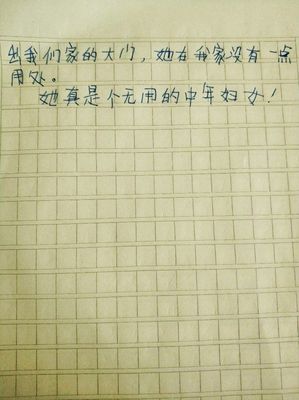 出我们家的大门，她在我家没有一点
用处。
她真是个无用的中年妇女！